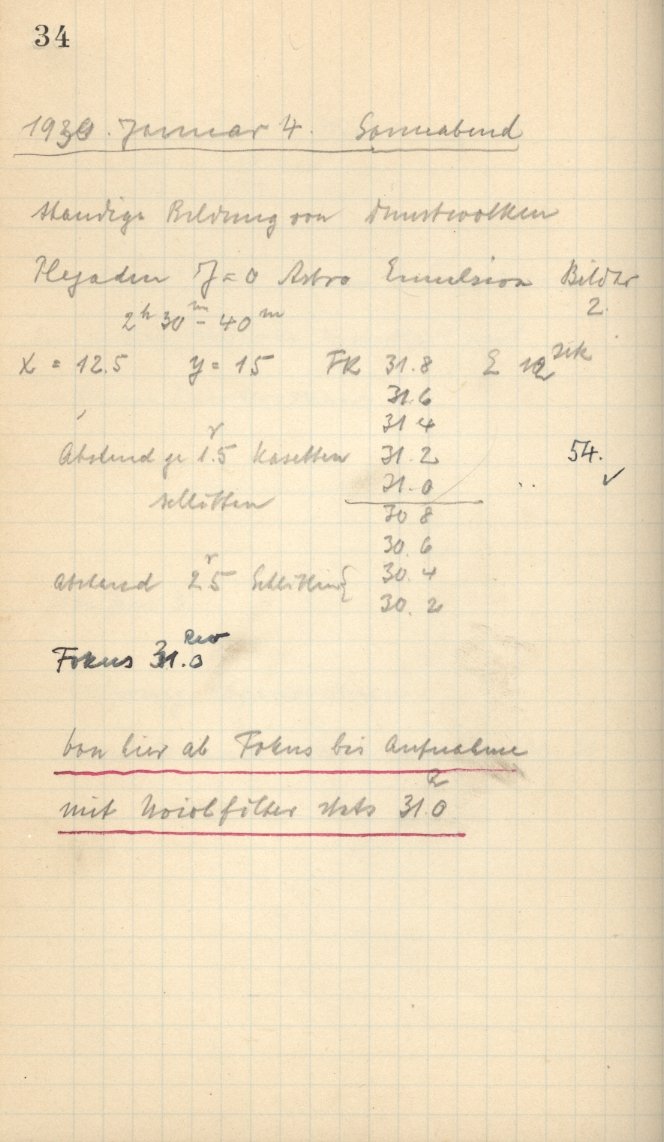 34
1930. Januar 4. Sonnabend
ständige Bildung von Dunstwolken
Plejaden J = 0 Astro Emulsion Bilder
2
2h 30m - 40m
x = 12.5 y = 15 FR 31.8 E sek
31.6
31 4
Abstand je 1.5r Kasetten 31.2 54. ✓
schlitten 31.0
30 8
30.6
Abstand 2r5 30.4
30.2
Fokus 31.0 Rev
von hier ab Fokus bis Aufnahme
mit filter stets 31.0